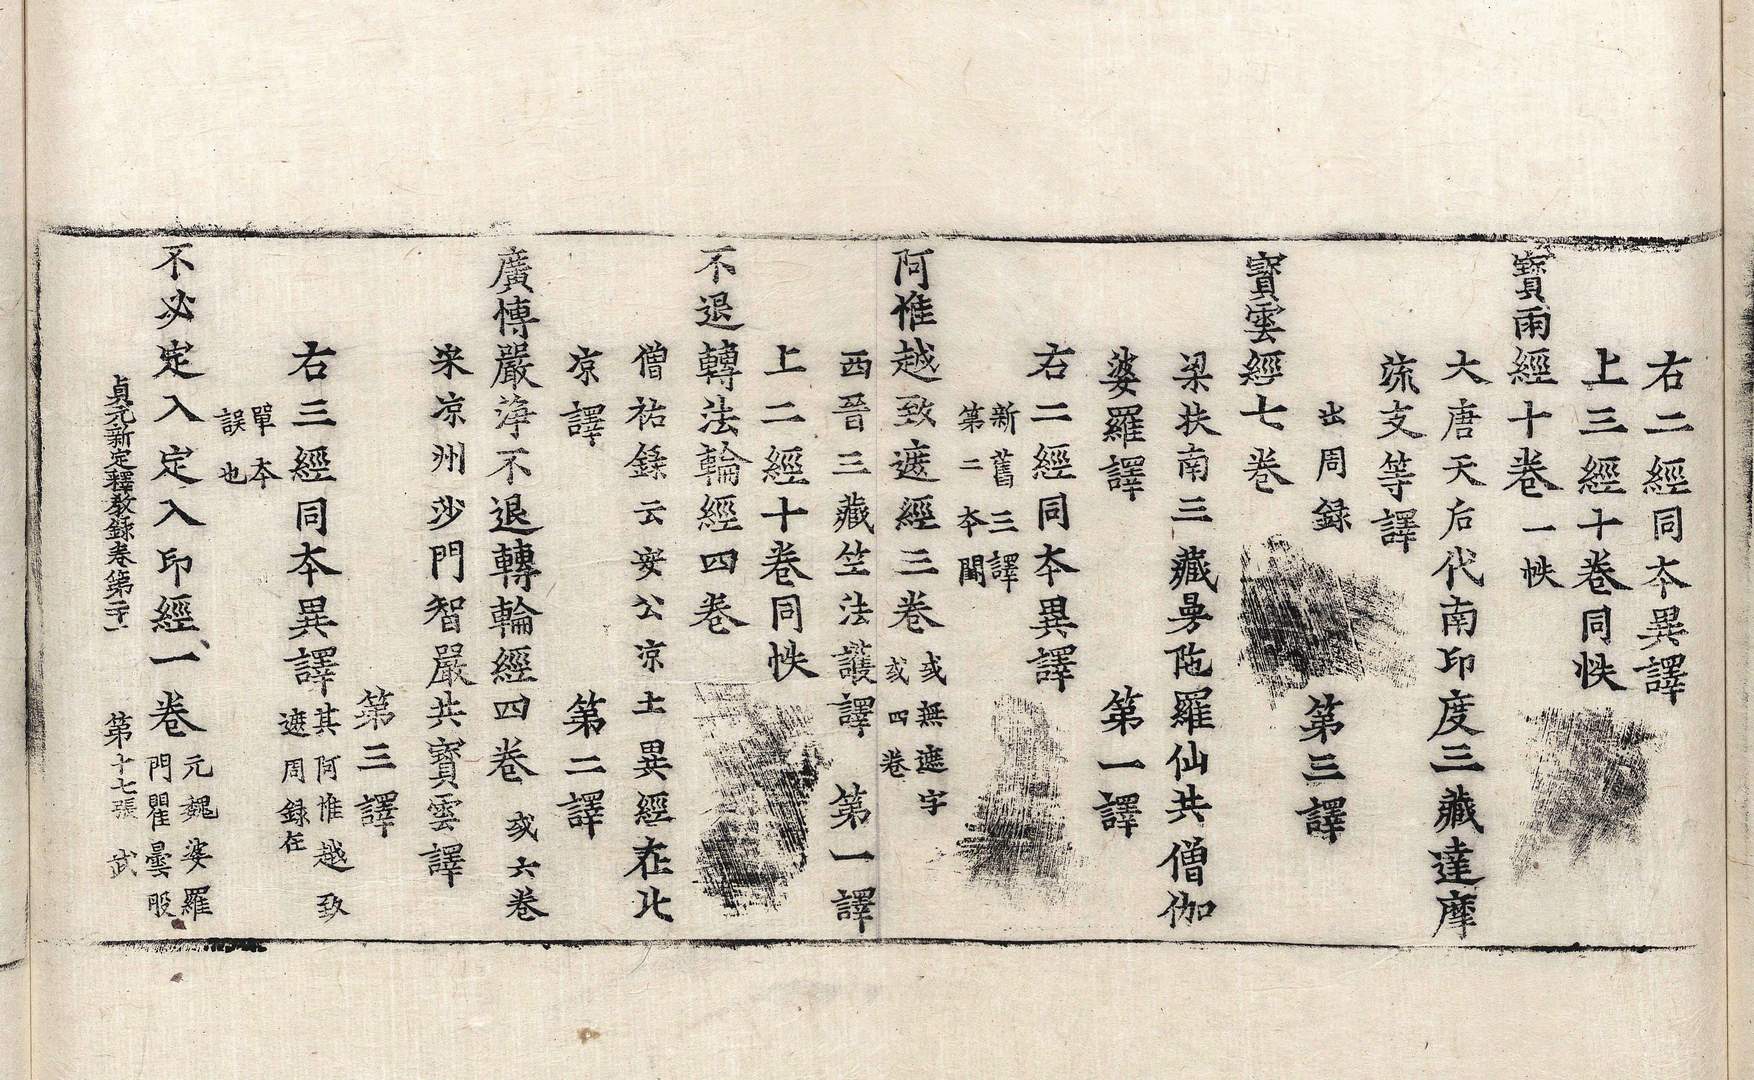 右二經同本異譯
上三經十卷同帙
寶雨經十卷一帙
大唐天后代南印度三藏達摩
流支等譯
出周録 第三譯
寶雲經七卷
梁扶南三藏曼陁羅仙共僧伽
婆羅譯 第一譯
右二經同本異譯
新舊三譯
第二本闕
阿惟越致遮經三卷 或無遮字
或四卷
西晉三藏竺法護譯 第一譯
上二經十卷同帙
不退轉法輪經四卷
僧祐録云安公凉土異經在北
凉譯 第二譯
廣博嚴淨不退轉輪經四卷 或六卷
宋凉州沙門智嚴共寶雲譯
第三譯
右三經同本異譯 其阿惟越致
遮周録在
單本
誤也
不必定入定入印經一卷 元魏婆羅
門瞿曇般
貞元新定釋教録卷第二十一 第十七張 武